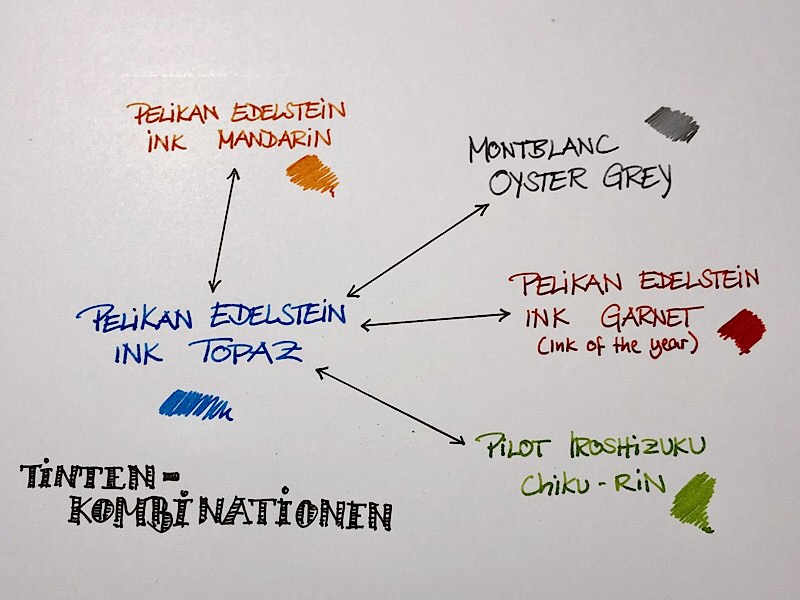 PELIKAN EDELSTEIN
INK MANDARIN
MONTBLANC
OYSTER GREY
PELIKAN EDELSTEIN
INK GARNET
(ink of the year)
PELIKAN EDELSTEIN
INK TOPAZ
PILOT IROSHIZUKU
CHIKU-RIN
TINTEN-
KOMBINATIONEN